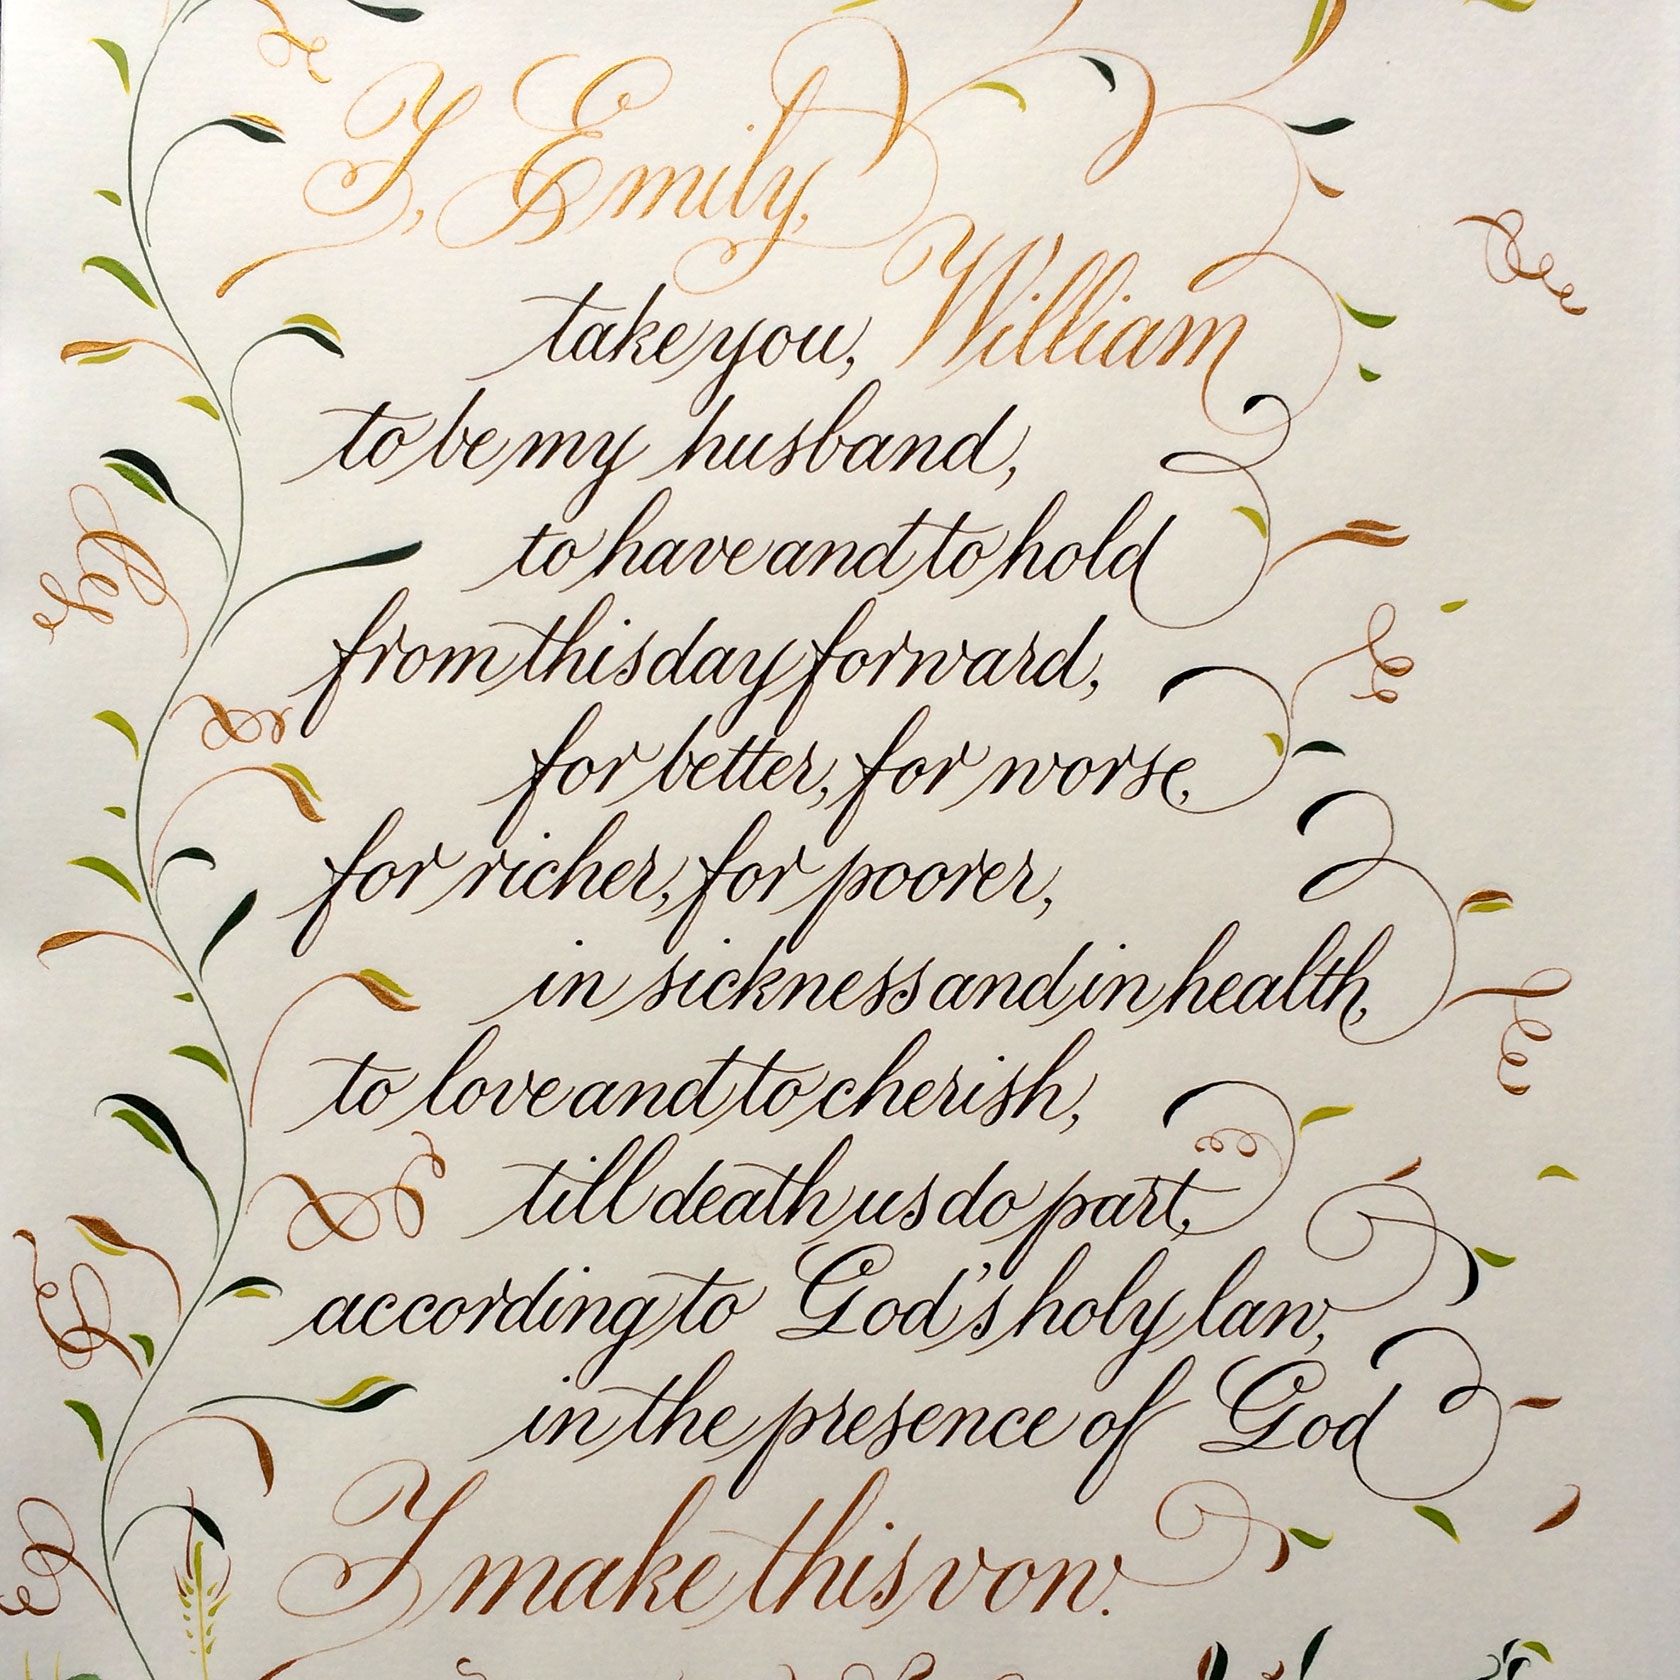 I, Emily,
take you, William
to be my husband,
to have and to hold
from this day forward,
for better, for worse,
for richer, for poorer,
in sickness and in health,
to love and to cherish,
till death us do part,
according to God's holy law,
in the presence of God
I make this vow.